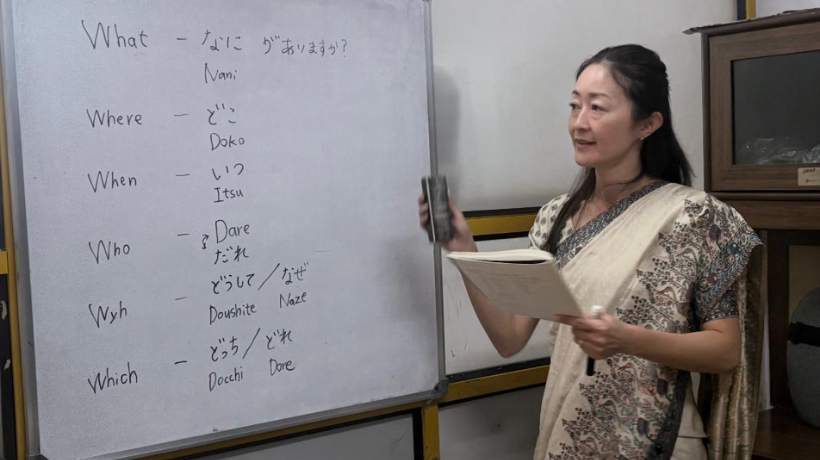 What – なに がありますか?
Nani
Where – どこ
Doko
When – いつ
Itsu
Who – Dare
だれ
Wyh – どうして / なぜ
Doushite Naze
Which – どっち / どれ
Docchi Dore